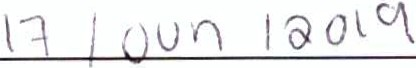 17 / Jun / 2019